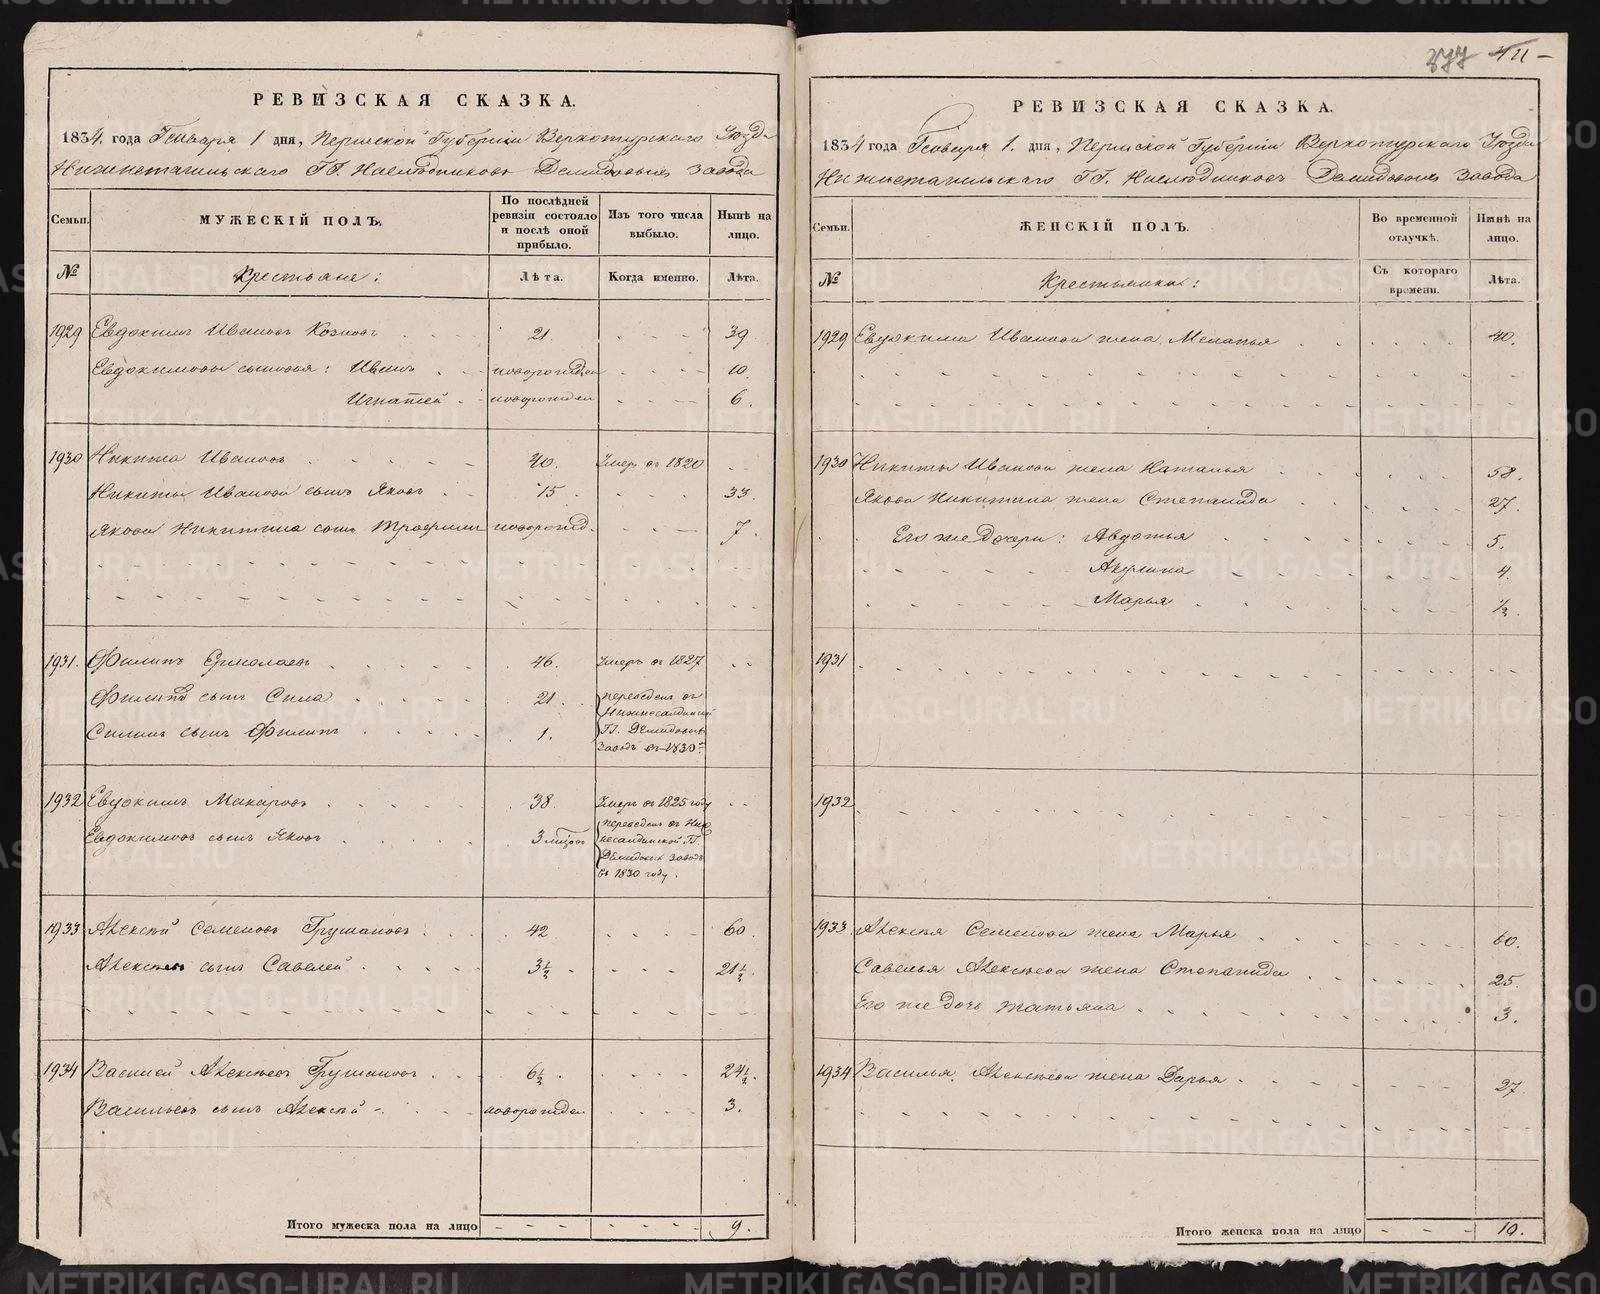 РЕВИЗСКАЯ СКАЗКА.
1834. года Генваря 1 дня, Пермской Губерніи Верхотурскаго Уезда
Нижнетагильскаго ГГ. Наследниковъ Демидовыхъ Завода
Семьи.
МУЖЕСКІЙ ПОЛЪ.
По послѣдней ревизіи состояло и послѣ оной прибыло.
Изъ того числа выбыло.
Нынѣ на лицо.
№
Крестьяне:
Лѣта.
Когда именно.
Лѣта.
1929 Евдокимъ Ивановъ Козловъ 21. 39
Евдокимовы сыновья: Иванъ новорожден 10.
Игнатей новорожден 6.
1930 Никита Ивановъ 40. Умеръ въ 1820
Никиты Иванова сынъ Яковъ 15 33.
Якова Никитина сынъ новорожд. 7.
1931. Филипъ Ермолаевъ 46. Умеръ въ 1827
Филипа сынъ Сила 21. переведенъ въ
Нижнесалдинской
Силинъ сынъ Филипъ 1. ГГ. Демидовыхъ
Заводъ въ 1830
1932 Евдокимъ Макаровъ 38. Умеръ въ 1825 году
Евдокимовъ сынъ Яковъ 3 переведенъ въ Ниж
несалдинской ГГ.
Демидовыхъ Заводъ
въ 1830 году.
1933 Алексѣй Семеновъ Грушановъ 42 60.
Алексѣевъ сынъ Савелей 3½ 21½
1934 Василей Алексѣевъ Грушановъ 6½ 24½.
Васильевъ сынъ Алексѣй новорожден 3.
Итого мужеска пола на лицо 9.
277 411
РЕВИЗСКАЯ СКАЗКА.
1834 года Генваря 1. дня, Пермской Губерніи Верхотурскаго Уезда
Нижнетагильскаго ГГ. Наследниковъ Демидовыхъ Завода
Семьи.
ЖЕНСКІЙ ПОЛЪ.
Во временной отлучкѣ.
Нынѣ на лицо.
№
Крестьянки:
Съ котораго времени.
Лѣта.
1929 Евдокима Иванова жена Меланья 40.
1930 Никиты Иванова жена Наталья 58.
Якова Никитина жена Степанида 27.
Его же дочери: Авдотья 5.
Акулина 4.
Марья ½.
1931
1932
1933. Алексѣя Семенова жена Марья 60.
Савелья Алексѣева жена Степанида 25.
Его же дочь Татьяна 3.
1934 Василья Алексѣева жена Дарья 27
Итого женска пола на лицо 10.
METRIKI.GASO-URAL.RU